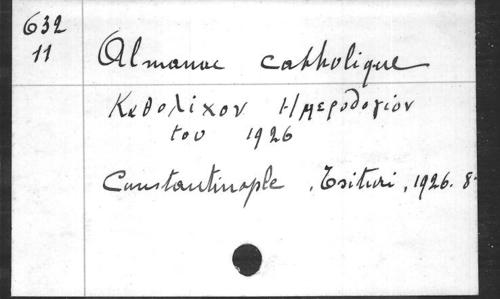 632
11
Almanac catholique
Καθολιχον Ημεροδογίον
του 1926
Constantinople, Tsituri, 1926. 8-